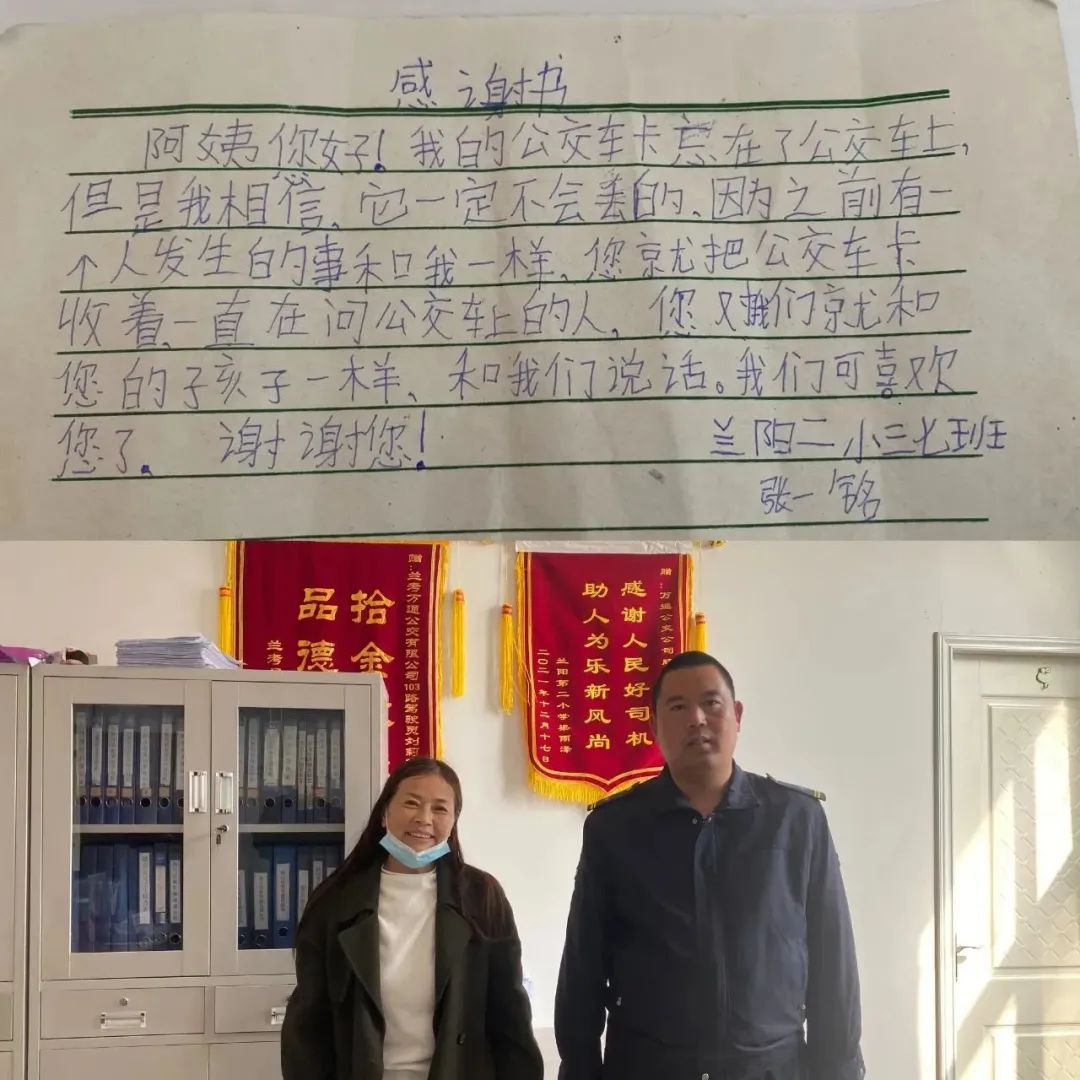 感谢书
阿姨您好！我的公交车卡忘在了公交车上，
但是我相信、它一定不会丢的、因为之前有一
个人发生的事和我一样、您就把公交车卡
收着、一直在问公交车上的人，您对我们就和
您的子孩子一样、和我们说话。我们可喜欢
您了、谢谢您！
兰阳二小三七班
张一铭
赠：兰考万通公交有限公司103路驾驶员刘
拾金
品德
兰考
赠：万通公交公司
感谢人民好司机
助人为乐新风尚
兰阳第二小学梁雨泽
二〇二一年十二月十七日